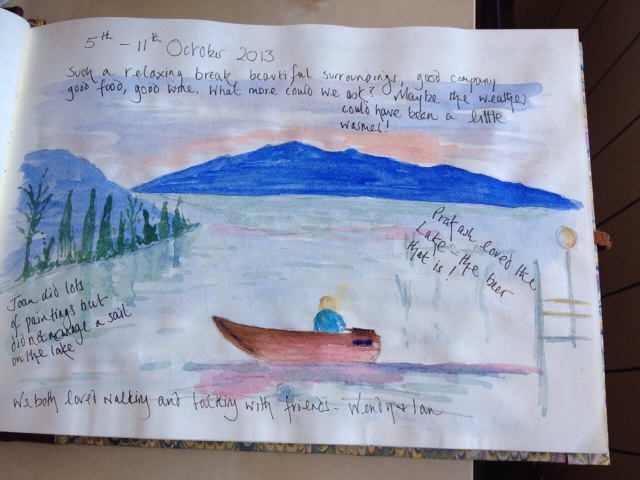 5th - 11th October 2013
Such a relaxing break, beautiful surroundings, good company
good food, good wine. What more could we ask? Maybe the weather
could have been a little
warmer!
Prakash loved the
Lake - the beer
that is!
Joan did lots
of paintings but
did not manage a sail
on the lake
We both loved walking and talking with friends - Wendy & Ian